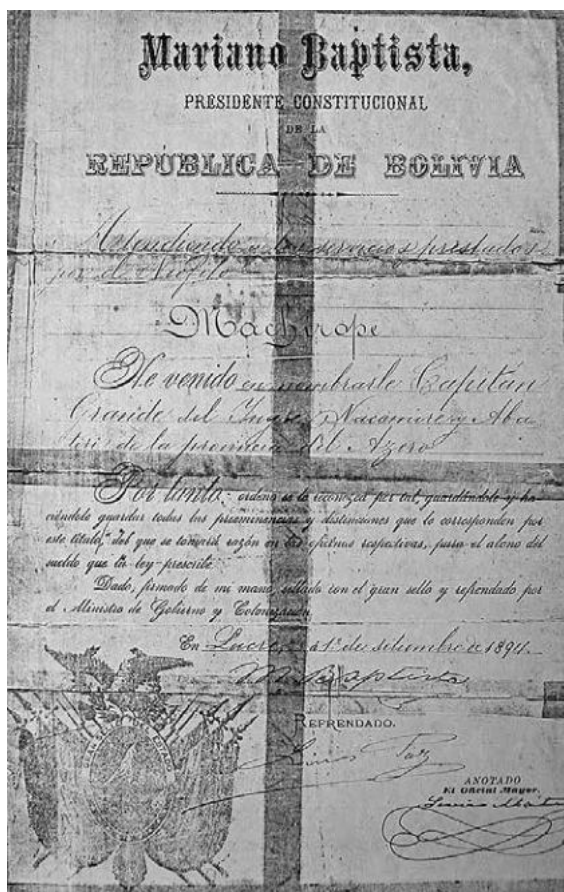 Mariano Baptista,
PRESIDENTE CONSTITUCIONAL
DE LA
REPÚBLICA DE BOLIVIA
Atendiendo a los servicios prestados
por el Neófito
Machirope
He venido en nombrarle Capitán
Grande del Ingre, Ñacamiri y Aba
de la provincia del Azero
Por tanto: ordeno se le reconozca por tal, guardándole y ha-
ciéndole guardar todas las preeminencias y distinciones que le corresponden por
este título, del que se tomará razón en las oficinas respectivas, para el abono del
sueldo que la ley prescribe.
Dado, firmado de mi mano, sellado con el gran sello y refrendado por
el Ministro de Gobierno y Colonización
En Sucre, a 1º de setiembre de 1894.
M. Baptista
REFRENDADO.
Luis Paz
ANOTADO
El Oficial Mayor.